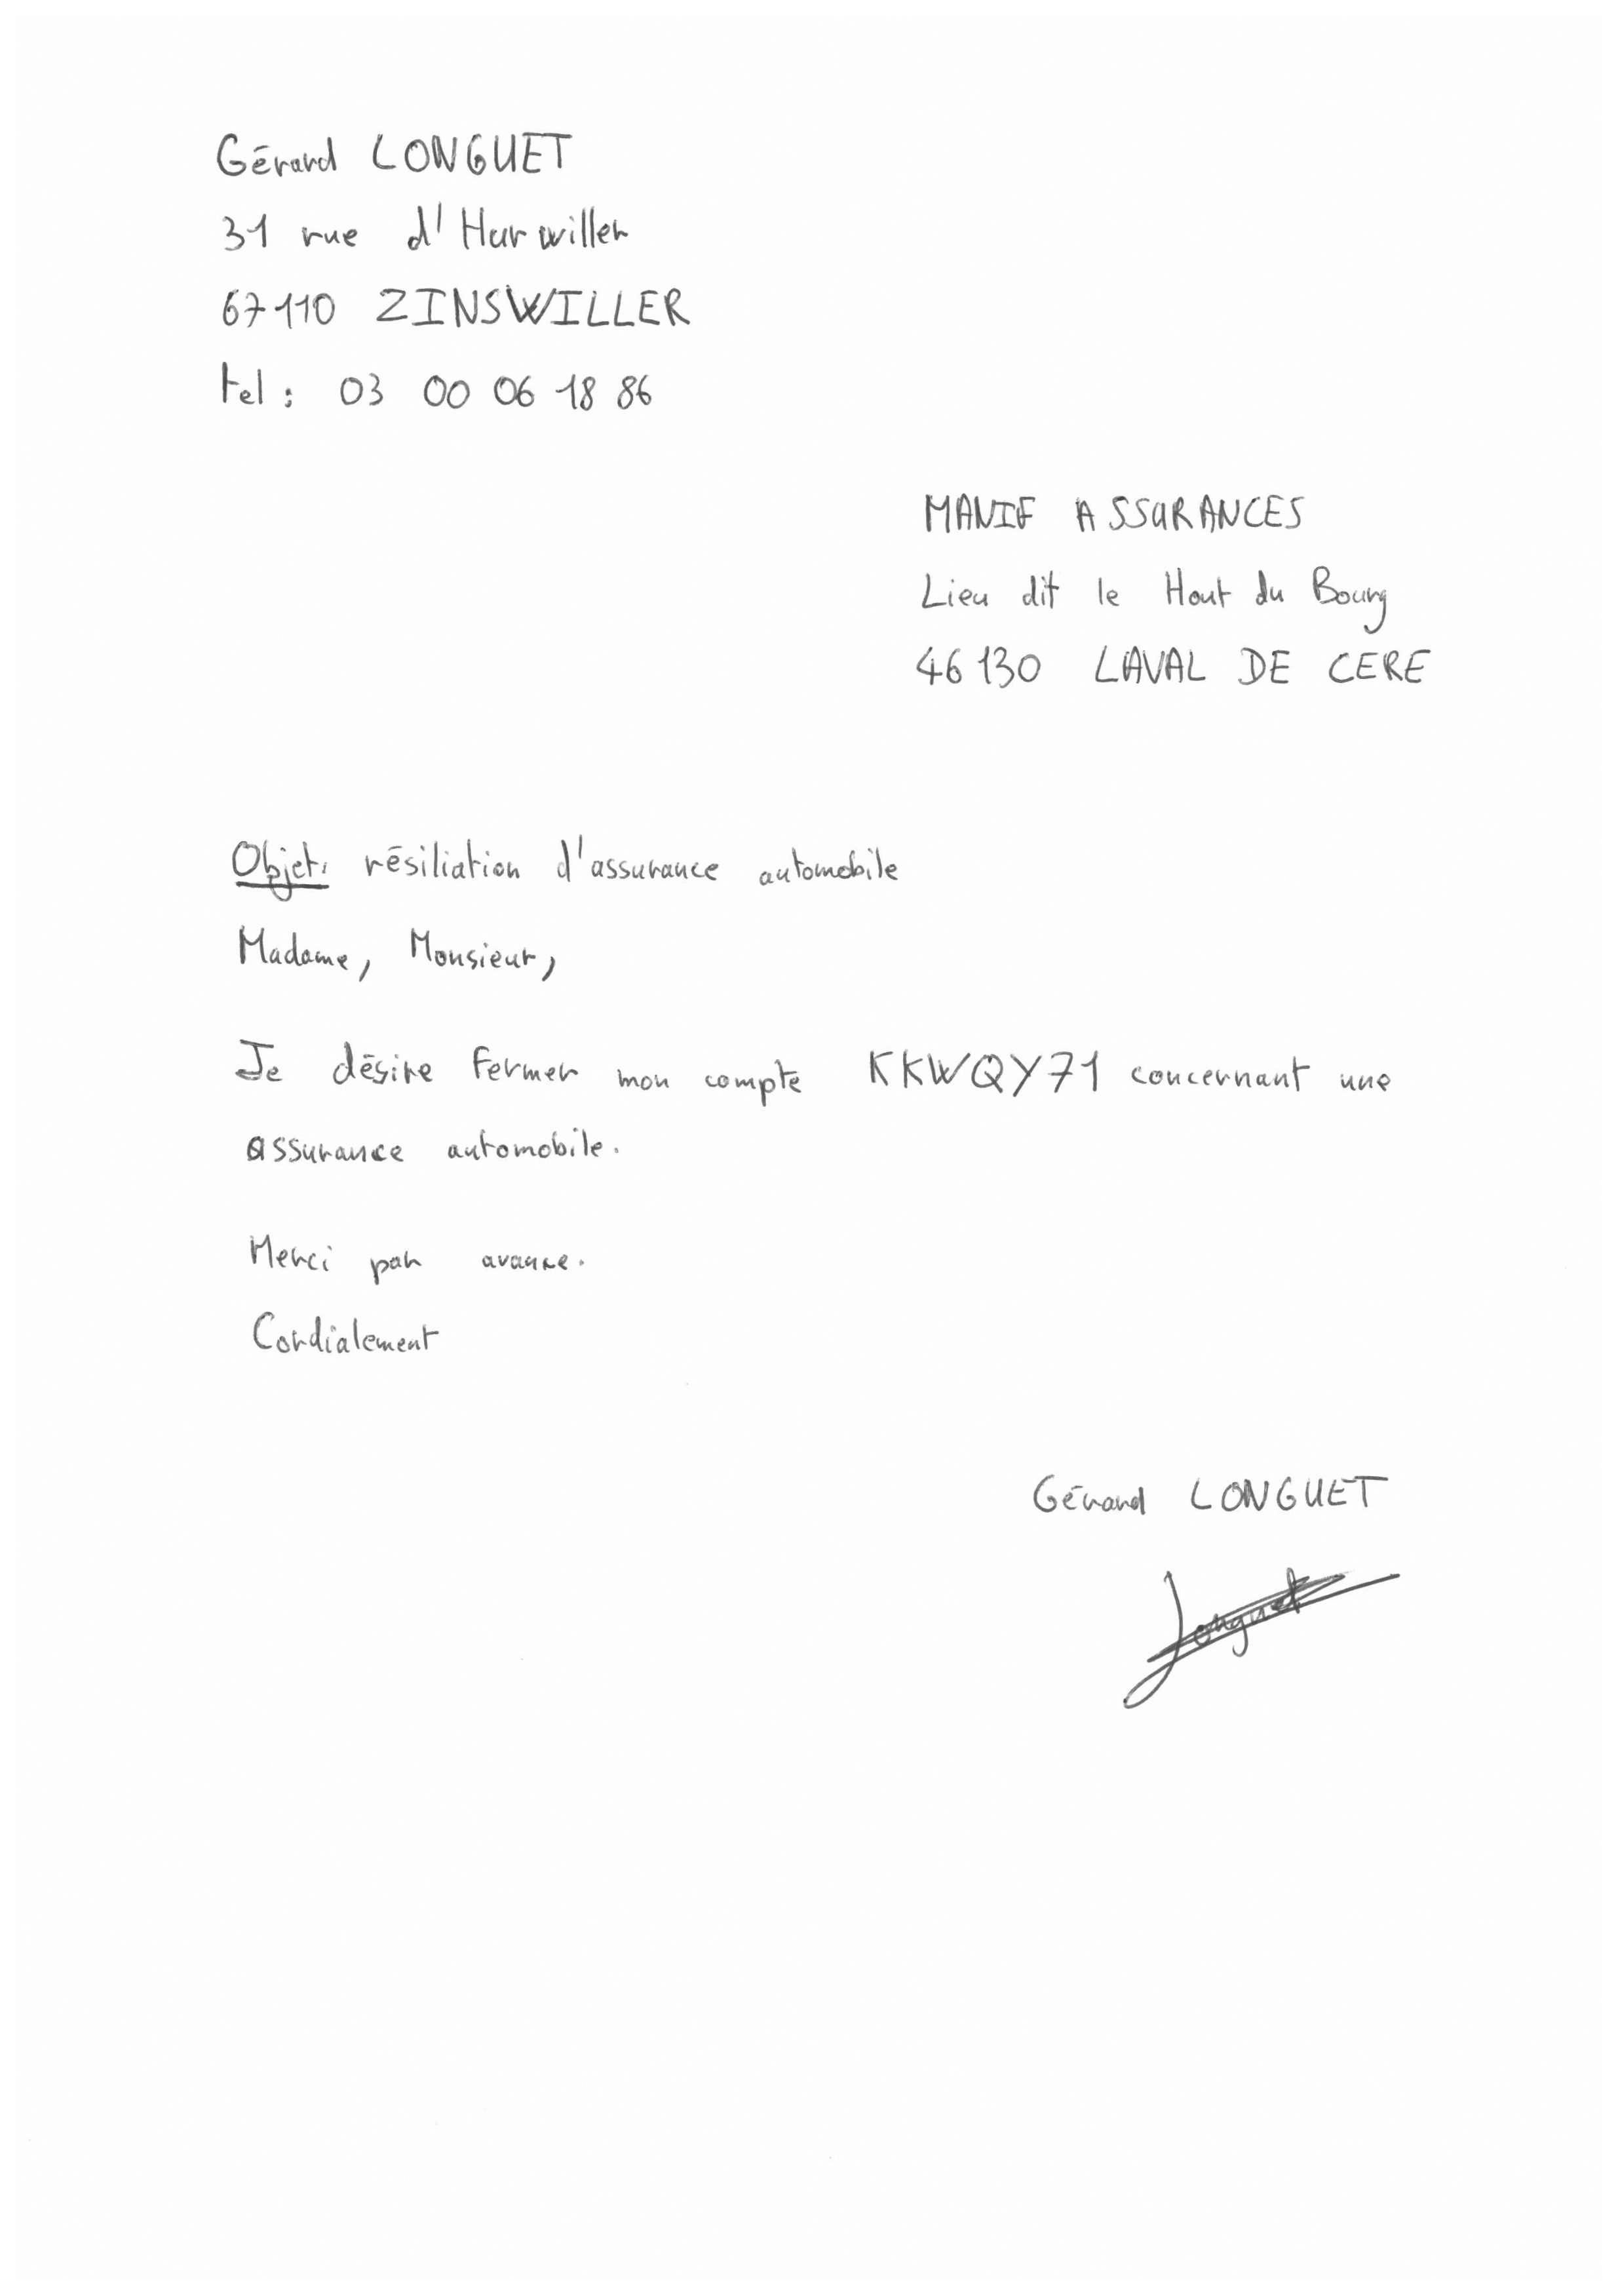 Gérard LONGUET
31 rue d'Harwiller
67110 ZINSWILLER
tel : 03 00 06 18 86
MANIF ASSURANCES
Lieu dit le Haut du Bourg
46130 LAVAL DE CERE
Objet: résiliation d'assurance automobile
Madame, Monsieur,
Je désire fermer mon compte KKWQY71 concernant une
assurance automobile.
Merci par avance.
Cordialement
Gérard LONGUET
Longuet